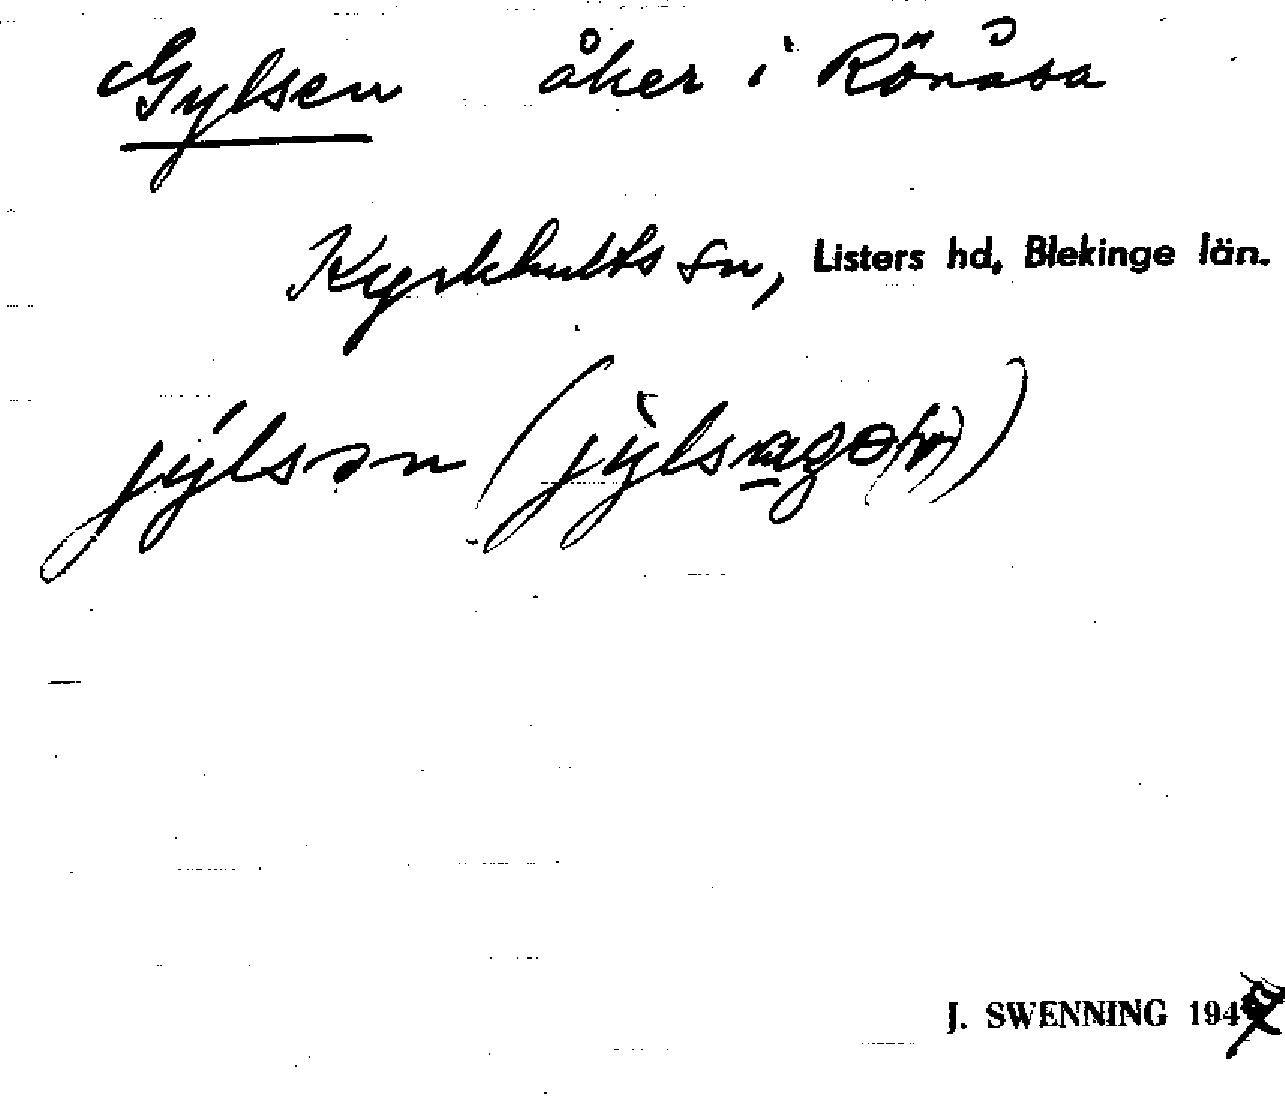 Gylsen åker i Rönåsa
Kyrkhults sn, Listers hd, Blekinge län.
jýlsən
J. SWENNING 194